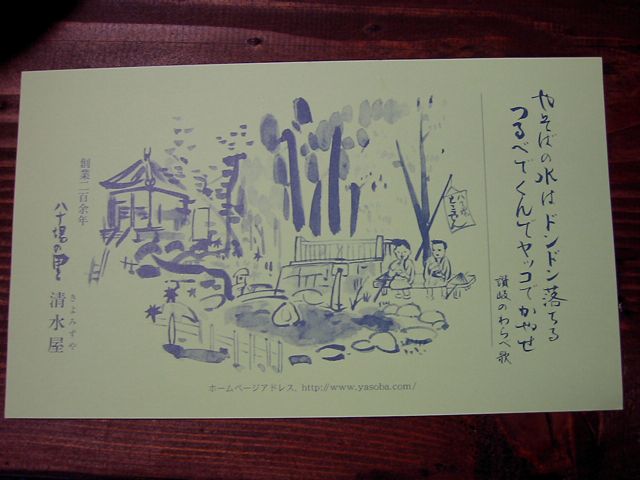 やそばの水は ドンドン落ちる
つるべでくんで ヤッコでかやせ
讃岐のわらべ歌
創業二百余年
八十場の里
清水屋
きよみずや
ホームページアドレス. http://www.yasoba.com/